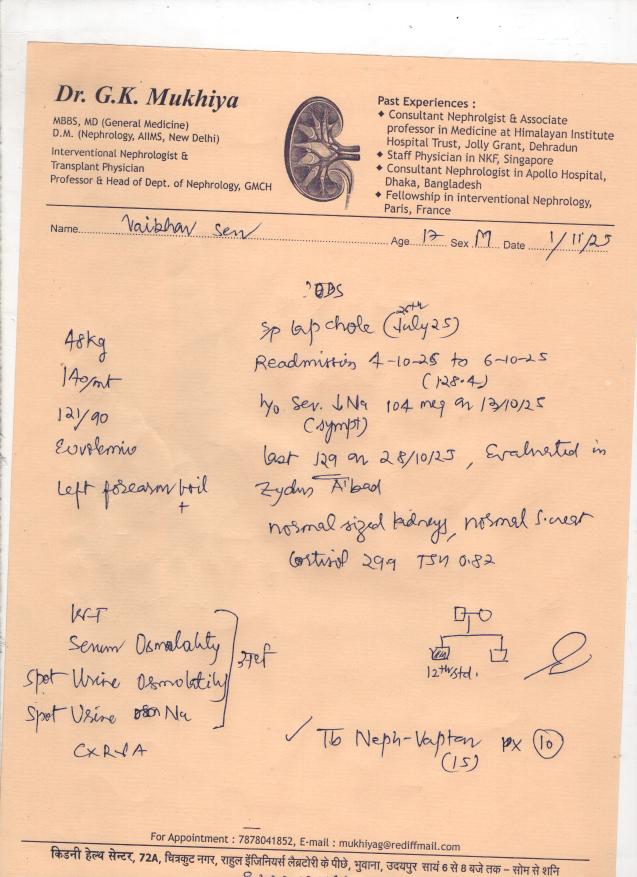 Dr. G.K. Mukhiya
MBBS, MD (General Medicine)
D.M. (Nephrology, AIIMS, New Delhi)
Interventional Nephrologist &
Transplant Physician
Professor & Head of Dept. of Nephrology, GMCH
Past Experiences :
◆ Consultant Nephrolgist & Associate
professor in Medicine at Himalayan Institute
Hospital Trust, Jolly Grant, Dehradun
◆ Staff Physician in NKF, Singapore
◆ Consultant Nephrologist in Apollo Hospital,
Dhaka, Bangladesh
◆ Fellowship in interventional Nephrology,
Paris, France
Name Vaibhav Sen Age 17 Sex M Date 1/11/25
48kg
121/90
Euvolemic
Left forearm boil
+
Sp lap chole (July 25)
Readmission 4-10-25 to 6-10-25
(128.4)
h/o Sev. ↓Na 104 meq on 13/10/25
(sympt)
last 129 on 28/10/25, Evaluated in
Zydus A'bad
normal sized kidneys, normal S. creat
Cortisol 299 TSH 0.82
Serum Osmolality
Spot Urine Osmolality
Spot Urine Na
CXR-PA
12th std.
✓ Tb Neph-Vaptan
(15)
10
For Appointment : 7878041852, E-mail : mukhiyag@rediffmail.com
किडनी हेल्थ सेन्टर, 72A, चित्रकुट नगर, राहुल इंजिनियर्स लैब्रटोरी के पीछे, भुवाना, उदयपुर सायं 6 से 8 बजे तक – सोम से शनि